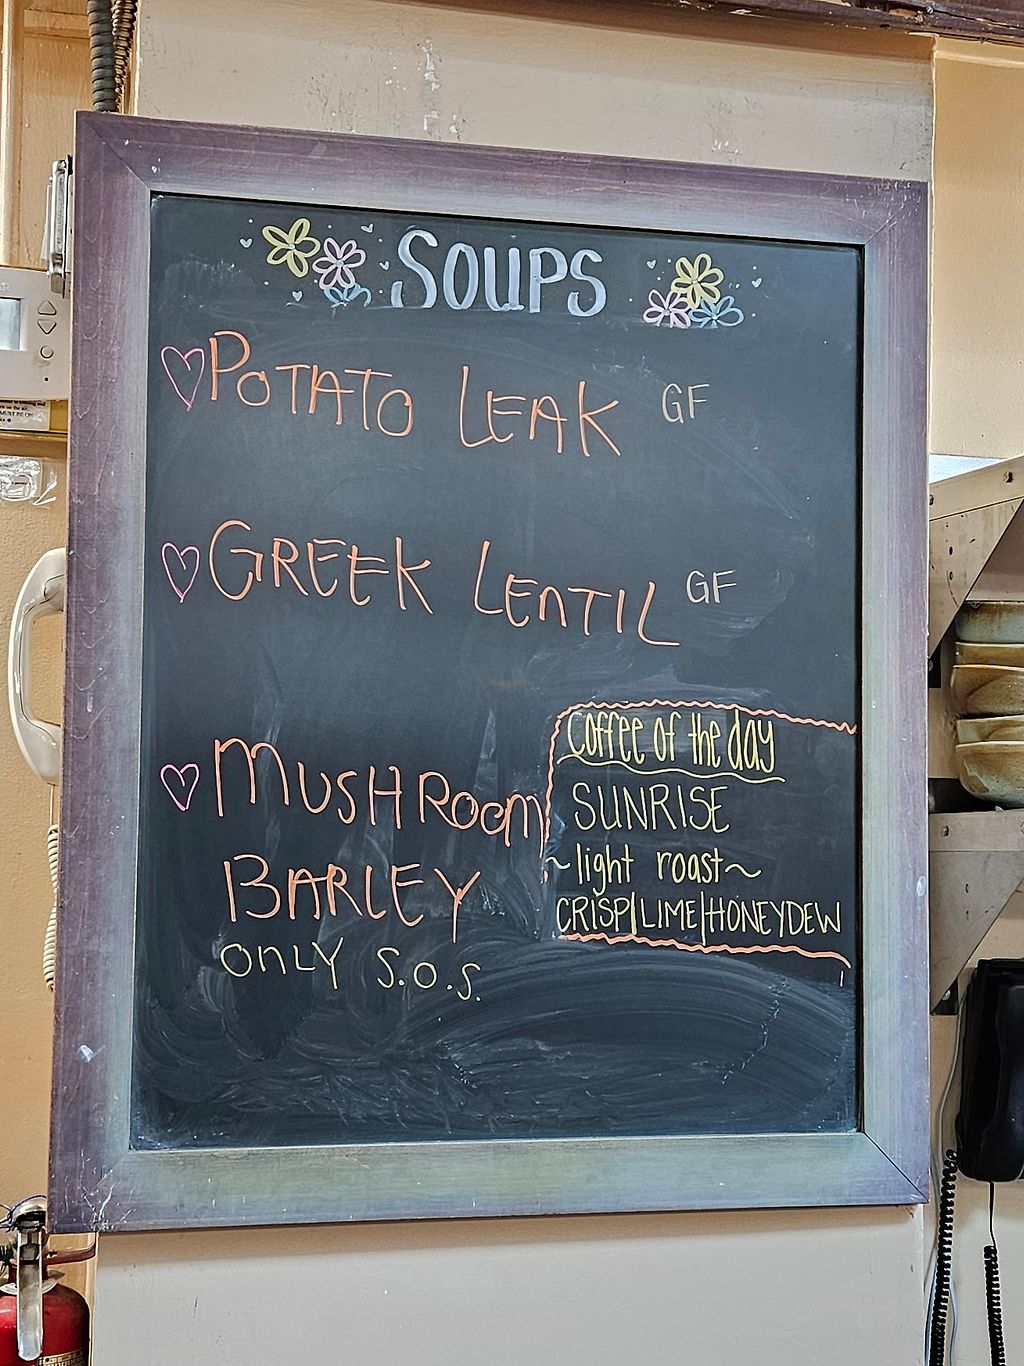 SOUPS
POTATO LEAK GF
GREEK LENTIL GF
MUSHROOM
BARLEY
ONLY S.O.S.
Coffee of the day
SUNRISE
~light roast~
CRISP|LIME|HONEYDEW